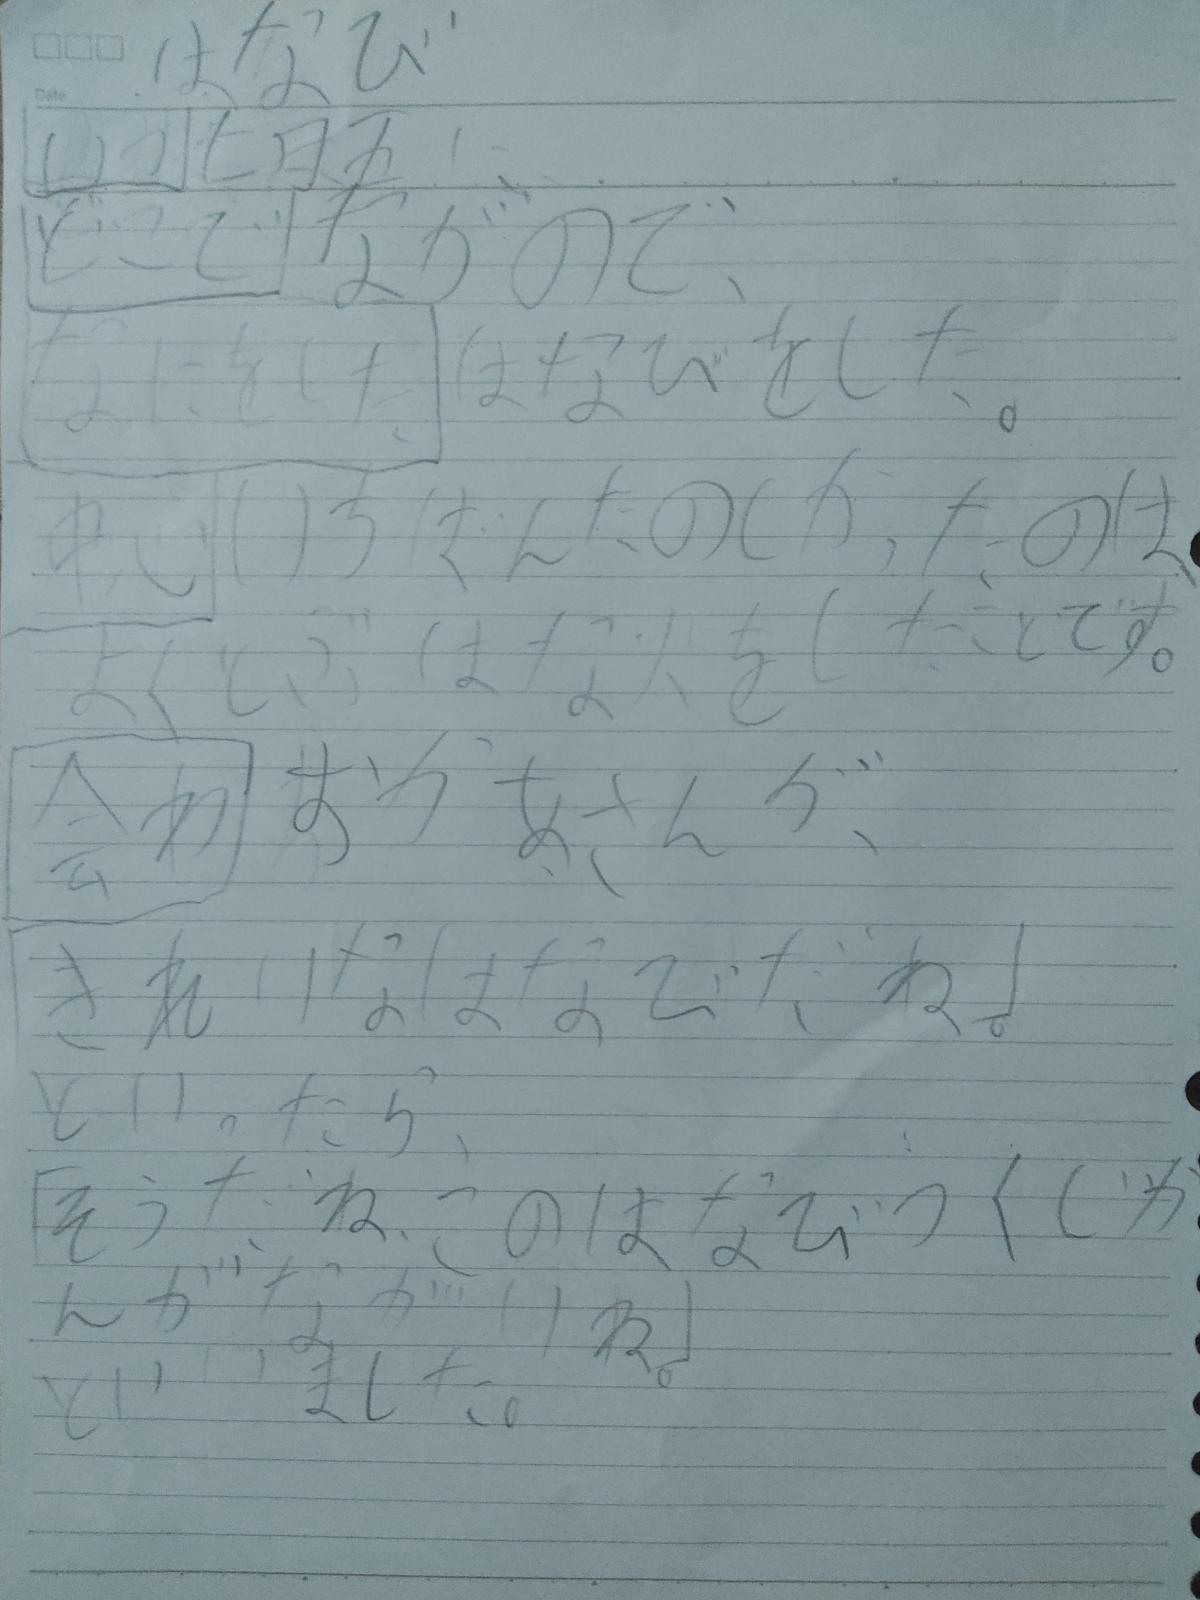 はなび
Date
いつ 七日五に、
どこで ながので、
なにをした はなびをした。
いちばんたのしかったのは、
よくとぶはなびをしたことです。
会わ おかあさんが、
きれいなはなびだね。」
といったら、
「そうだね、このはなびつくじか
んがながいね。」
といいました。